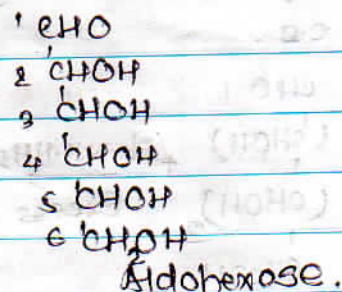 1 CHO
2 CHOH
3 CHOH
4 CHOH
5 CHOH
6 CH2OH
Aldohexose.